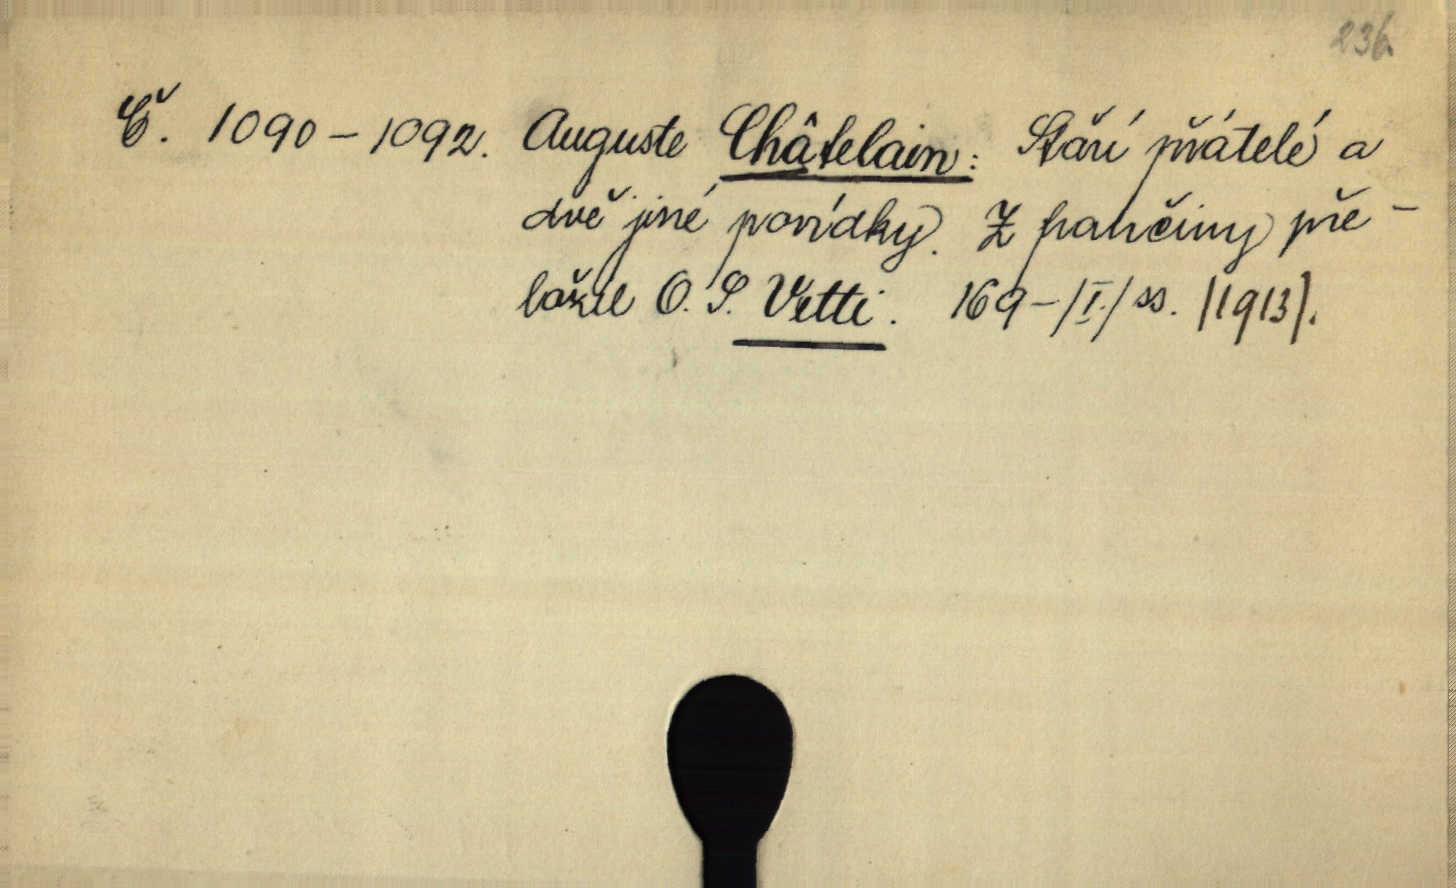 236
Č. 1090-1092. Auguste Châtelain: Staří přátelé a
dvě jiné povídky. Z frančiny pře-
ložil O. S. Vetti. 169-/I./ ss. /1913/.